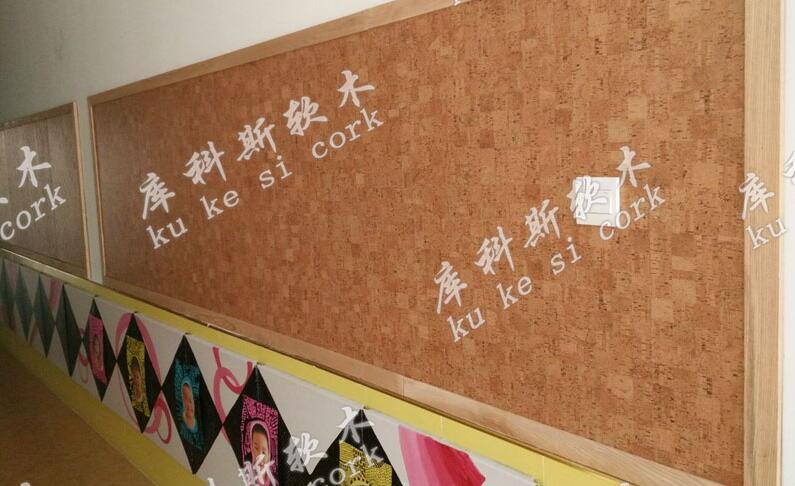 库科斯软木
ku ke si cork
木
cork
库科斯软木
ku ke si cork
库
ku
软木
cork